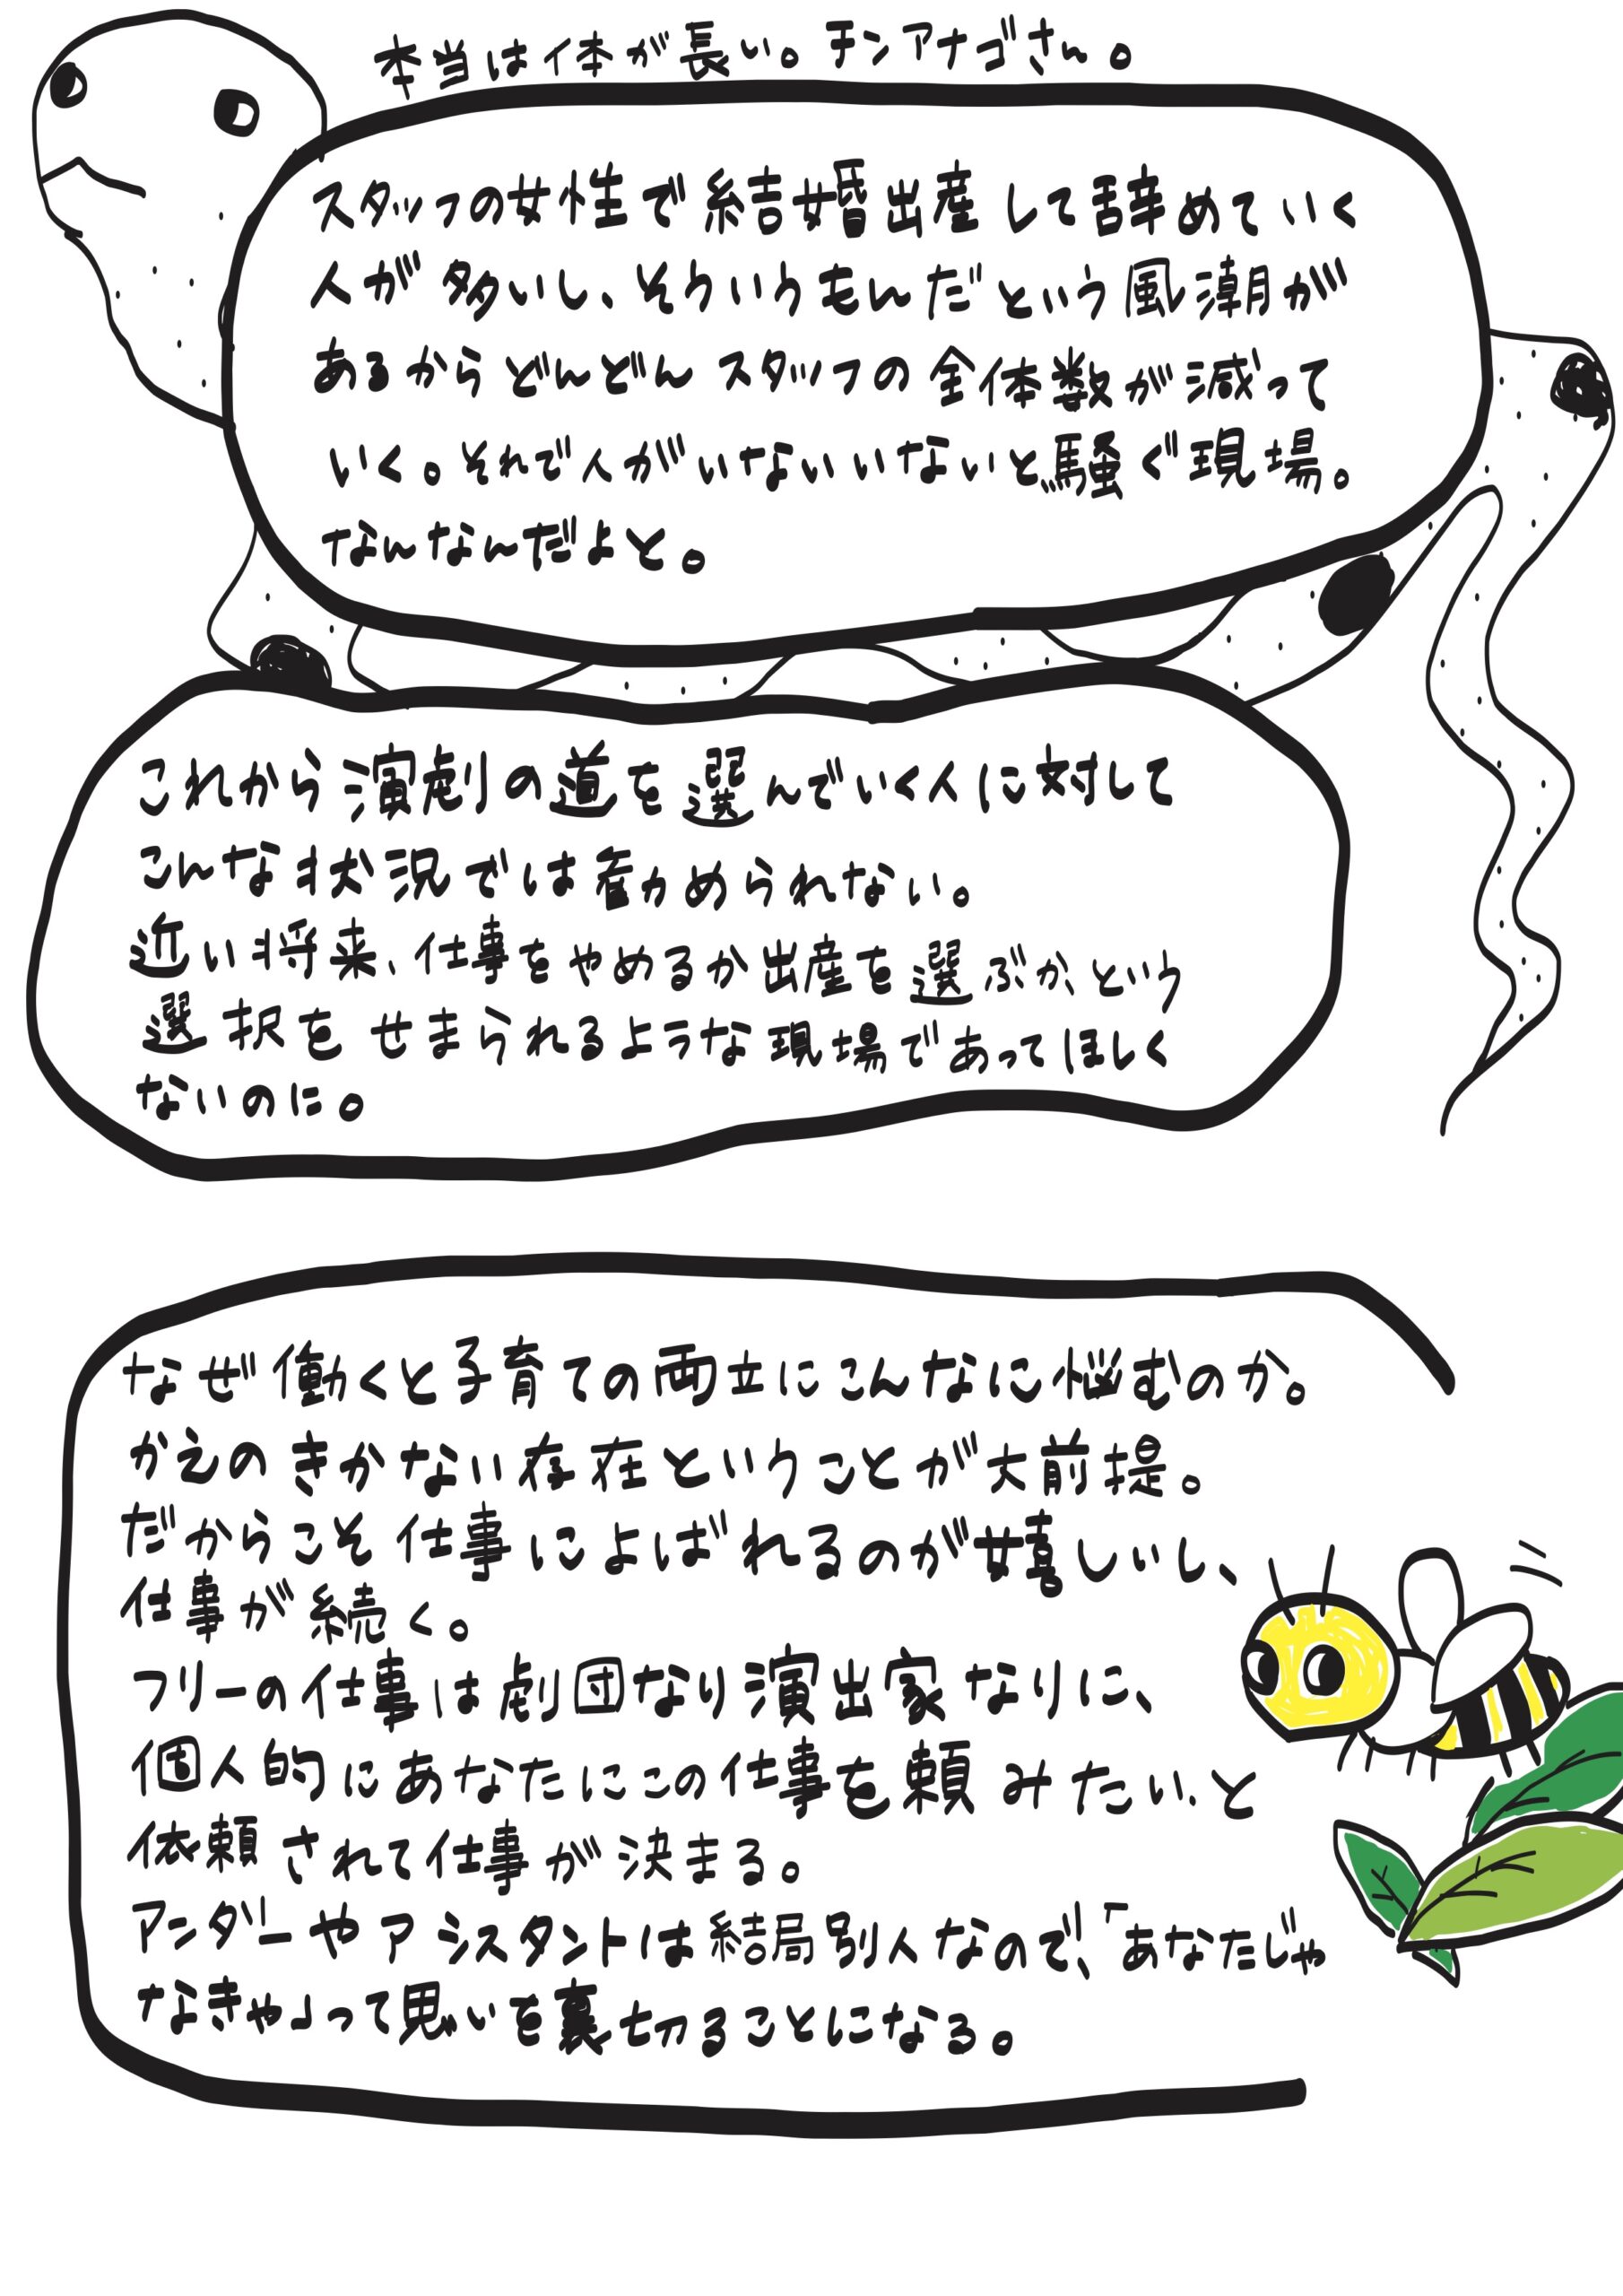 本当は体が長い。チンアナゴさん。
スタッフの女性で結婚出産して辞めていく
人が多いし、そういうもんだという風潮が
あるからどんどんスタッフの全体数が減って
いく。それで人がいないいないと騒ぐ現場。
なんなんだよと。
これから演劇の道を選んでいく人に対して
こんな状況では薦められない。
近い将来、仕事をやめるか出産を選ぶか、という
選択をせまられるような現場であってほしく
ないのに。
なぜ働くと子育ての両立にこんなに悩むのか。
かえのきかない存在ということが大前提。
だからこそ仕事によばれるのが嬉しいし、
仕事が続く。
フリーの仕事は劇団なり演出家なりに、
個人的にあなたにこの仕事を頼みたい、と
依頼されて仕事が決まる。
アンダーやアシスタントは結局別人なので、「あなたじゃ
なきゃ」って思いを裏切ることになる。